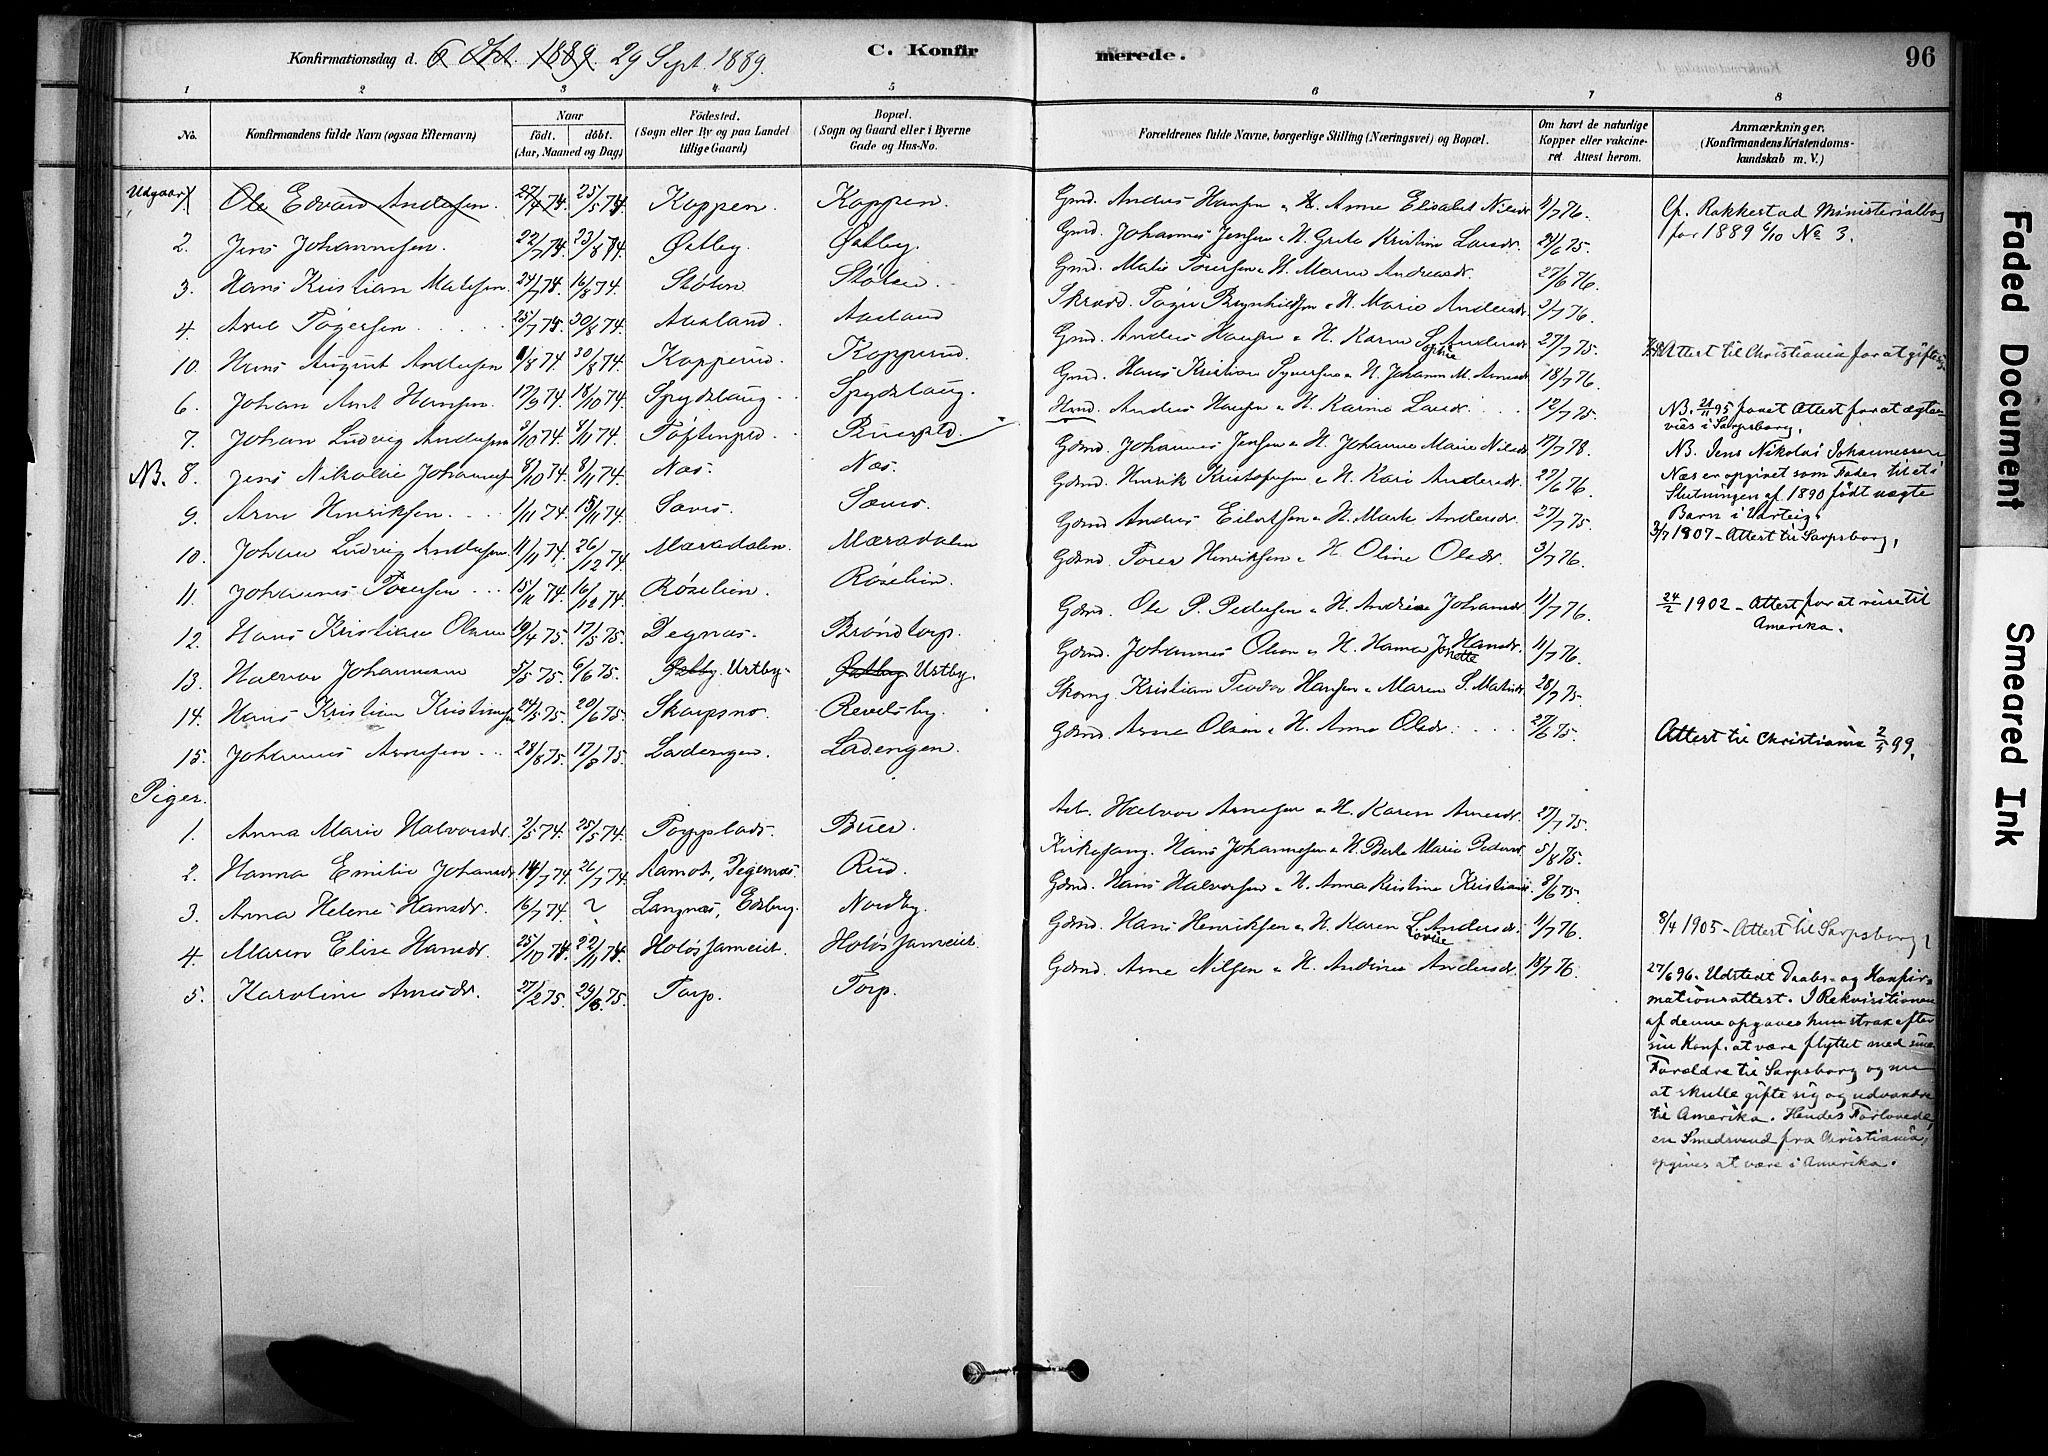 Konfirmationsdag d. 6 Okt. 1889. 29 Sept. 1889.
C. Konfir
merede.
96
1 2 3 4 5 6 7 8
No.
Konfirmandens fulde Navn (ogsaa Efternavn)
Naar
født. døbt.
(Aar, Maaned og Dag)
Fødested.
(Sogn eller By og paa Landet
tillige Gaard)
Bopæl.
(Sogn og Gaard eller i Byerne
Gade og Hus-No.
Forældrenes fulde Navne, borgerlige Stilling (Næringsvei) og Bopæl.
Om havt de naturlige
Kopper eller vakcine-
ret Attest herom.
Anmærkninger.
(Konfirmandens Kristendoms-
kundskab m. V.)
Udgaar 1. Ole Edvard Andersen. 27/4 74. 25/5 74. Koppen. Koppen. Gmd. Anders Hansen o. H. Anne Elisabet Nilsdr. 11/7 76. Cf. Rakkestad Ministerialbog
for 1889 6/10 No 3.
2. Jens Johannesen. 22/7 74. 23/8 74. Østby. Østby. Gmd. Johannes Jensen o. H. Grete Kristine Larsdr. 24/6 75.
3. Hans Kristian Matisen. 24/7 74. 16/8 74. Støten. Støten. Gmd. Matis Torersen o. H. Maren Andreasdr. 27/6 76.
4. Axel Tøgersen 25/7 74. 30/8 74. Aaeland. Aaeland Skrædd. Tøger Brynhildsen o. H. Marie Andersdr. 3/7 76.
10. Hans August Andersen 1/8 74. 30/8 74. Kopperud. Kopperud. Gmd. Anders Hansen o. H. Karen Sophie Andersdr. 27/7 75. Attest til Christiania for at gifte sig.
6. Johan Ant. Hansen. 17/9 74. 18/10 74. Spydslaug. Spydslaug. Gmd. Hans Kristian Syversen o. H. Johanne M. Arnesdr. 18/7 76.
7. Johan Ludvig Andersen 3/10 74. 1/11 74. Toftenpld. Buerpld. Hmd. Anders Hansen o. H. Karine Larsdr. 12/7 75. NB. 21/11 95 faaet Attest for at ægte-
vies i Sarpsborg.
NB. 8. Jens Nikolai Johannesen 8/10 74. 8/11 74. Næs. Næs. Gdmd. Johannes Jensen o. H. Johanne Marie Nilsdr. 17/7 78. NB. Jens Nikolai Johannessen
Næs er opgivet som Fader til et i
Slutningen af 1890 født uægte
Barn i Varteig.
9. Arne Henriksen. 1/11 74. 15/11 74. Sæves. Sæves. Gdmd. Henrik Kristofersen o. H. Kari Andersdr. 27/6 76.
10. Johan Ludvig Andersen. 11/11 74. 26/12 74. Mæradalen. Mæradalen Gdmd. Anders Eilertsen o. H. Marte Andersdr. 27/7 75. 3/7 1907 - Attest til Sarpsborg.
11. Johannes Torersen 15/11 74. 16/12 74. Røselien. Røselien. Gdmd. Torer Henriksen o. H. Oline Olsdr. 3/7 76.
12. Hans Kristian Olsen 19/4 75. 17/5 75. Degnæs. Brøndtorp. Gdmd. Ole P. Pedersen o. H. Andrine Johansdr. 11/7 76. 24/2 1902 - Attest for at reise til
Amerika.
13. Halvor Johannesen 3/5 75. 6/6 75. Østby. Ustby. Østby Ustby. Gdmd. Johannes Olsen o. H. Hanna Jonette Hansdr. 11/7 76.
14. Hans Kristian Kristiansen 24/5 75. 20/6 75. Skarpsno. Revelsby. Skomg. Kristian Teodor Hansen o. Maren S. Matisdr. 28/7 75.
15. Johannes Arnesen 28/6 75. 17/8 75. Ladengen. Ladengen. Gdmd. Arne Olsen o. H. Anne Olsdr. 27/6 75. Attest til Christiania 2/5 99.
Piger.
1. Anna Marie Halvorsdr. 2/5 74. 25/5 74. Toppslads. Buer. Arb. Halvor Arnesen o. H. Karen Arnesdr. 27/7 75.
2. Hanna Emilie Johansdr. 14/7 74. 26/7 74. Aamot, Degernes. Rud. Kirkesang. Hans Johannesen o. H. Berte Marie Pedersdr. 5/8 75.
3. Anna Helene Hansdr. 16/7 74. ? Langnæs, Edsberg. Nordby. Gdmd. Hans Halvorsen o. H. Anna Kristine Kristians. 8/6 75.
4. Maren Elise Hansdr. 25/10 74. 22/11 74. Holøsjameiet. Holøsjameiet. Gdmd. Hans Henriksen o. H. Karen Lovise Andersdr. 11/7 76. 8/4 1905 - Attest til Sarpsborg.
5. Karoline Arnesdr. 27/2 75. 29/3 75. Torp. Torp. Gdmd. Arne Nilsen o. H. Andine Andersdr. 18/7 76. 27/6 96. Udstedt Daabs- og Konfir-
mationsattest. I Rekvisitionen
af denne opgaves hun strax efter
sin Konf. at være flyttet med sine
Forældre til Sarpsborg og nu
at skulle gifte sig og udvandre
til Amerika. Hendes Forlovede,
en Smedsvend fra Christiania,
opgives at være i Amerika.
Faded Document
Smeared Ink